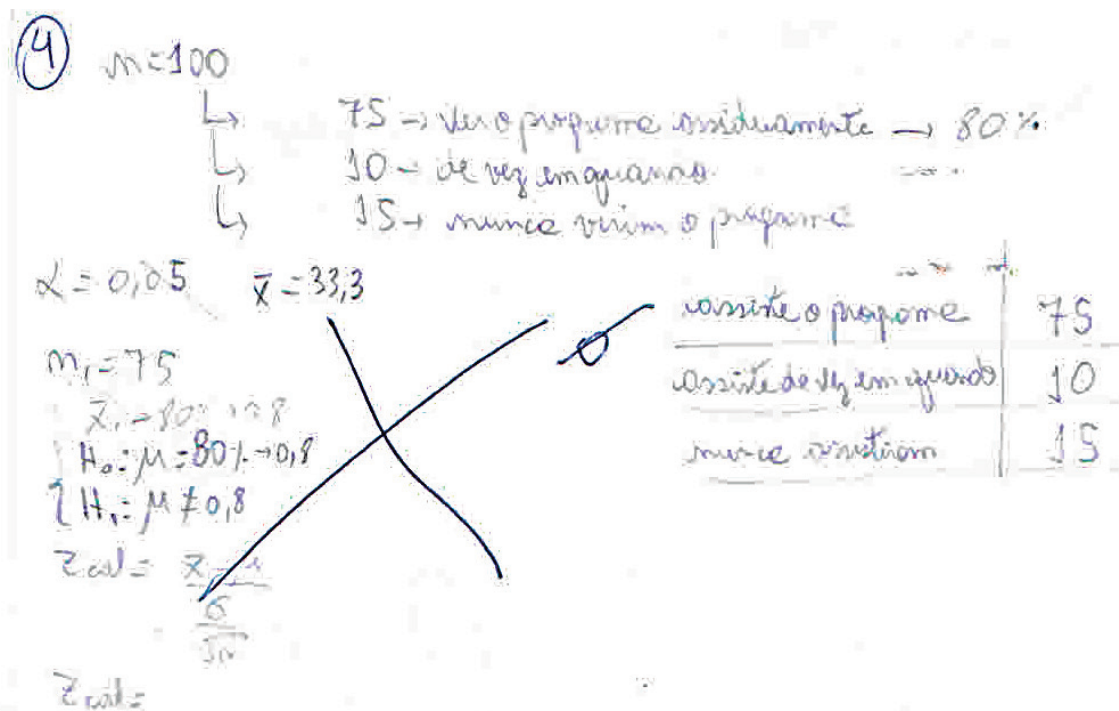 4
n=100
↳ 75 → ver o programa assiduamente → 80%
↳ 10 - de vez em quando
↳ 15 → nunca viram o programa
α = 0,05 x̄ = 33,3
n₁ = 75
x̄₁ → 80% → 0,8
H₀: μ = 80% → 0,8
H₁: μ ≠ 0,8
Zcal = x̄ - μ
σ
√n
Zcal =
assiste o programa 75
assiste de vez em quando 10
nunca assistiram 15